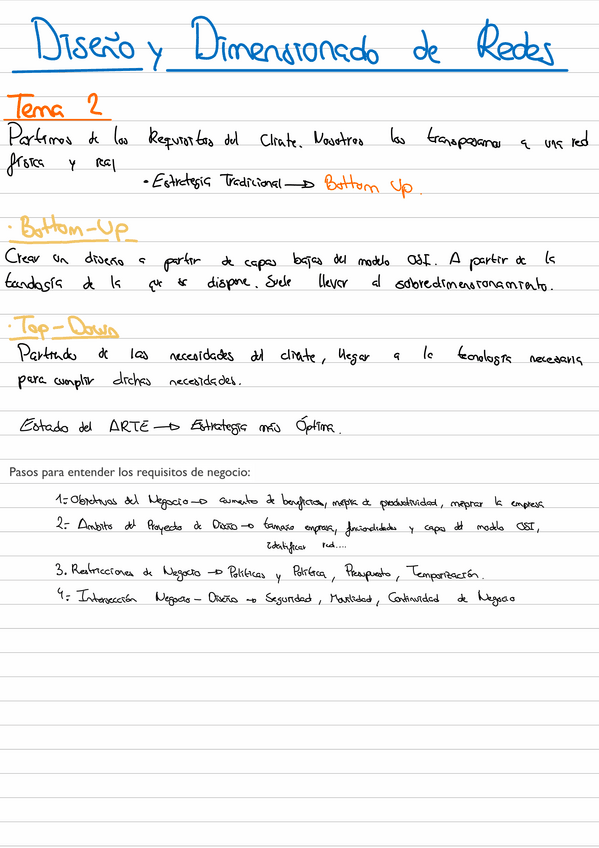 Diseño y Dimensionado de Redes
Tema 2
Partimos de los Requisitos del Cliente. Nosotros los transpasamos a una red
física y real
· Estrategia Tradicional → Bottom Up.
· Bottom-Up
Crear un diseño a partir de capas bajas del modelo OSI. A partir de la
tecnología de la que se dispone. Suele llevar al sobredimensionamiento.
· Top-Down
Partiendo de las necesidades del cliente, llegar a la tecnología necesaria
para cumplir dichas necesidades.
Estado del ARTE → Estrategia más Óptima.
Pasos para entender los requisitos de negocio:
1.- Objetivos del Negocio → aumento de beneficios, mejora de productividad, mejorar la empresa
2.- Ambito del Proyecto de Diseño → tamaño empresa, funcionalidades y capas del modelo OSI,
identificar red....
3. Restricciones de Negocio → Políticas y Política, Presupuesto, Temporización.
4.- Intersección Negocio - Diseño → Seguridad, Movilidad, Continuidad de Negocio